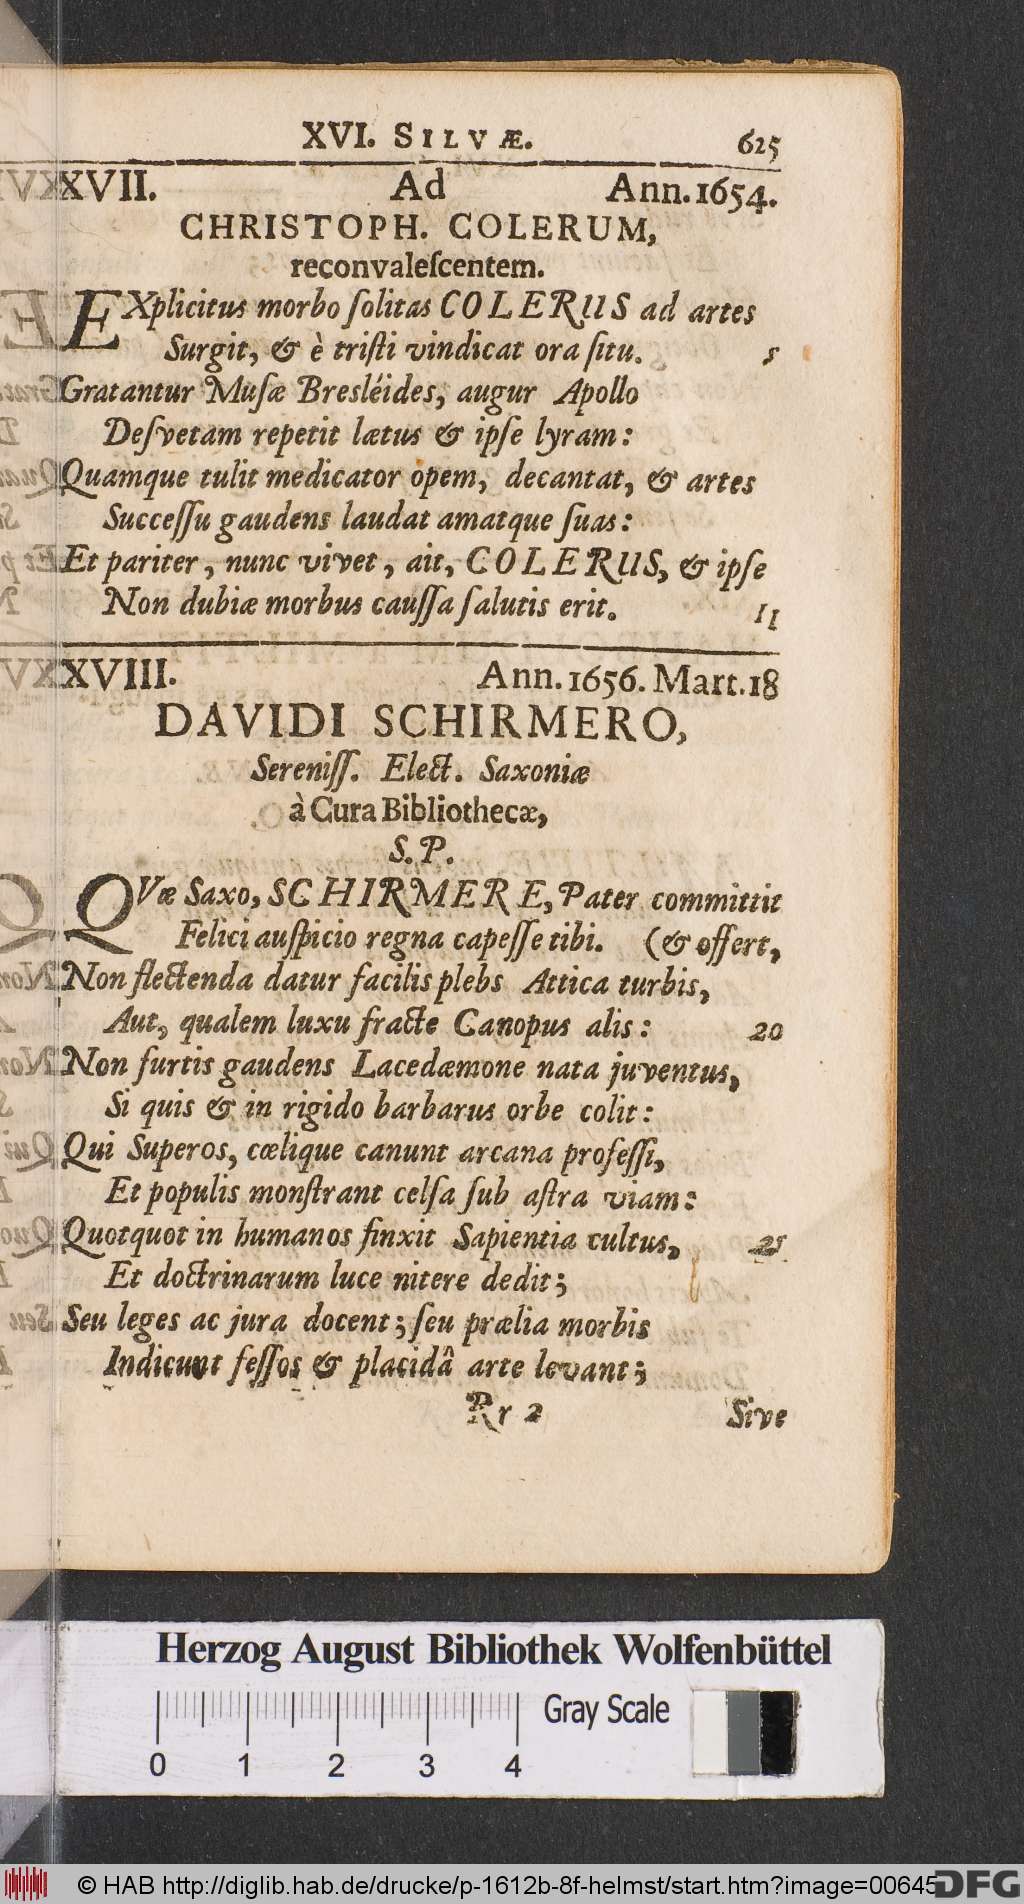 XVI. SILVÆ. 625
XVII. Ad Ann. 1654.
CHRISTOPH. COLERUM,
reconvaleſcentem.
EXplicitus morbo ſolitas COLERUS ad artes
Surgit, & è triſti vindicat ora ſitu. 5
Gratantur Muſæ Breſléides, augur Apollo
Deſvetam repetit lætus & ipſe lyram:
Quamque tulit medicator opem, decantat, & artes
Succeſſu gaudens laudat amatque ſuas:
Et pariter, nunc vivet, ait, COLERUS, & ipſe
Non dubiæ morbus cauſſa ſalutis erit. 11
XVIII. Ann. 1656. Mart. 18
DAVIDI SCHIRMERO,
Sereniſſ. Elect. Saxoniæ
à Cura Bibliothecæ,
S. P.
QVæ Saxo, SCHIRMERE, Pater committit
Felici auſpicio regna capeſſe tibi. (& offert,
Non flectenda datur facilis plebs Attica turbis,
Aut, qualem luxu fracte Canopus alis: 20
Non furtis gaudens Lacedæmone nata juventus,
Si quis & in rigido barbarus orbe colit:
Qui Superos, cœlique canunt arcana profeſſi,
Et populis monſtrant celſa ſub aſtra viam:
Quotquot in humanos finxit Sapientia cultus, 25
Et doctrinarum luce nitere dedit;
Seu leges ac jura docent; ſeu prælia morbis
Indicunt feſſos & placidâ arte levant;
Rr 2 Sive
Herzog August Bibliothek Wolfenbüttel
Gray Scale
0 1 2 3 4
© HAB http://diglib.hab.de/drucke/p-1612b-8f-helmst/start.htm?image=00645
DFG